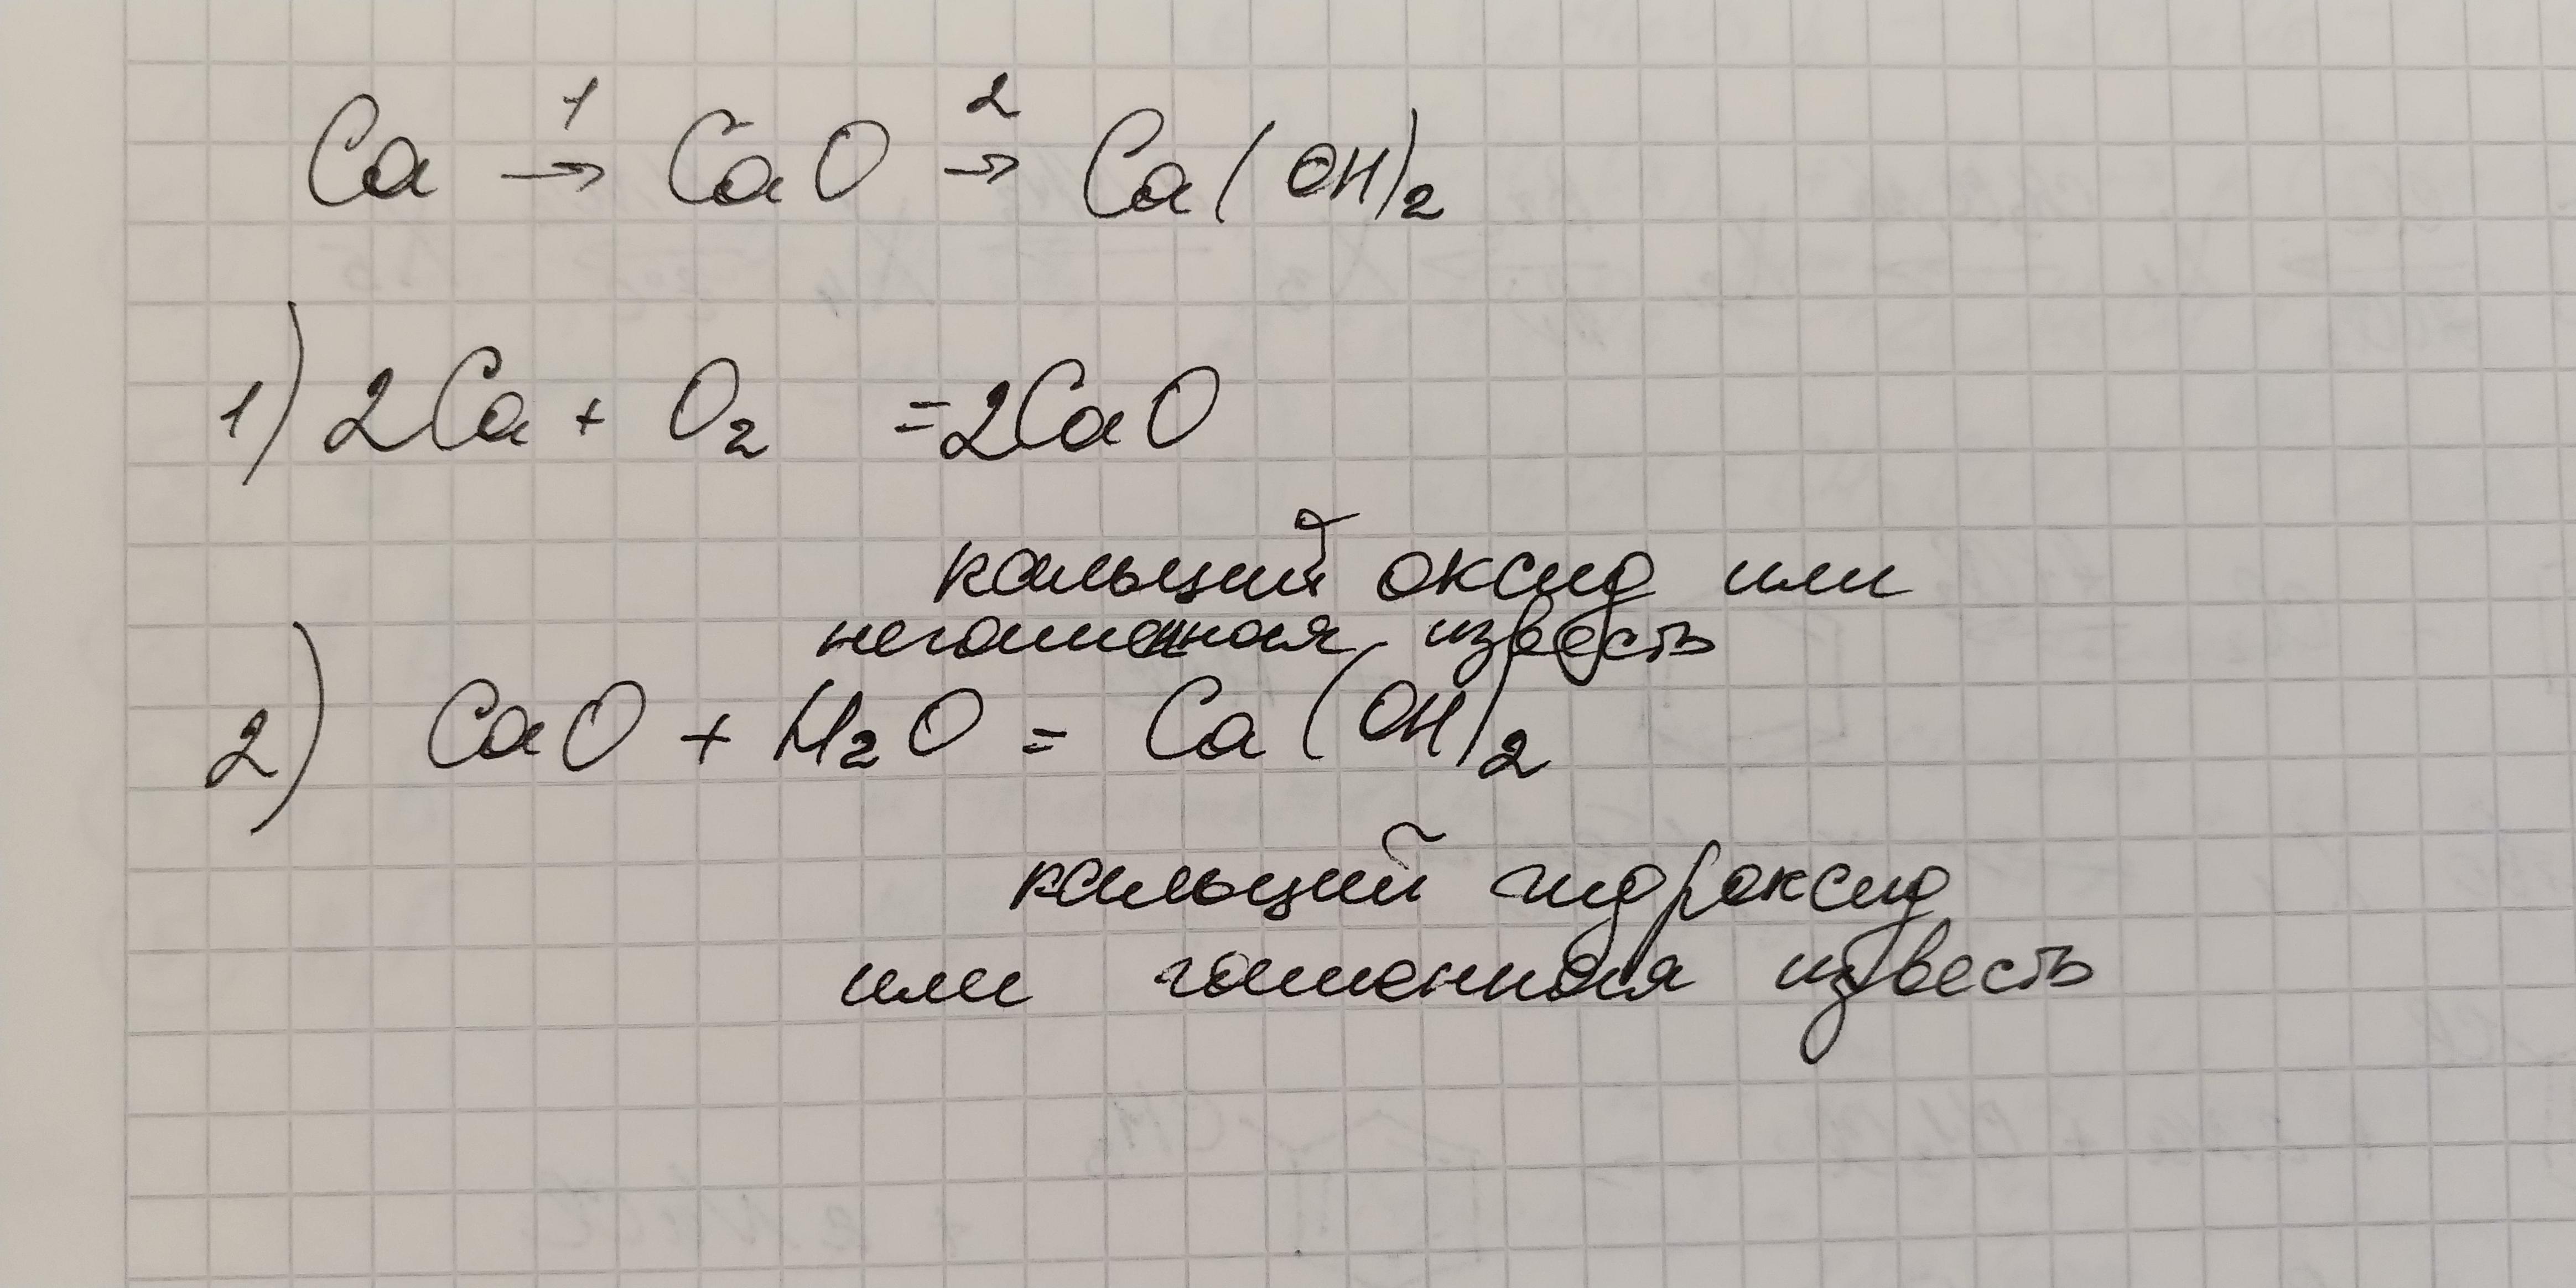 Ca →¹ CaO →² Ca(OH)₂
1) 2Ca + O₂ = 2CaO
кальций оксид или
негашенная известь
2) CaO + H₂O = Ca(OH)₂
кальций гидроксид
или гашенная известь